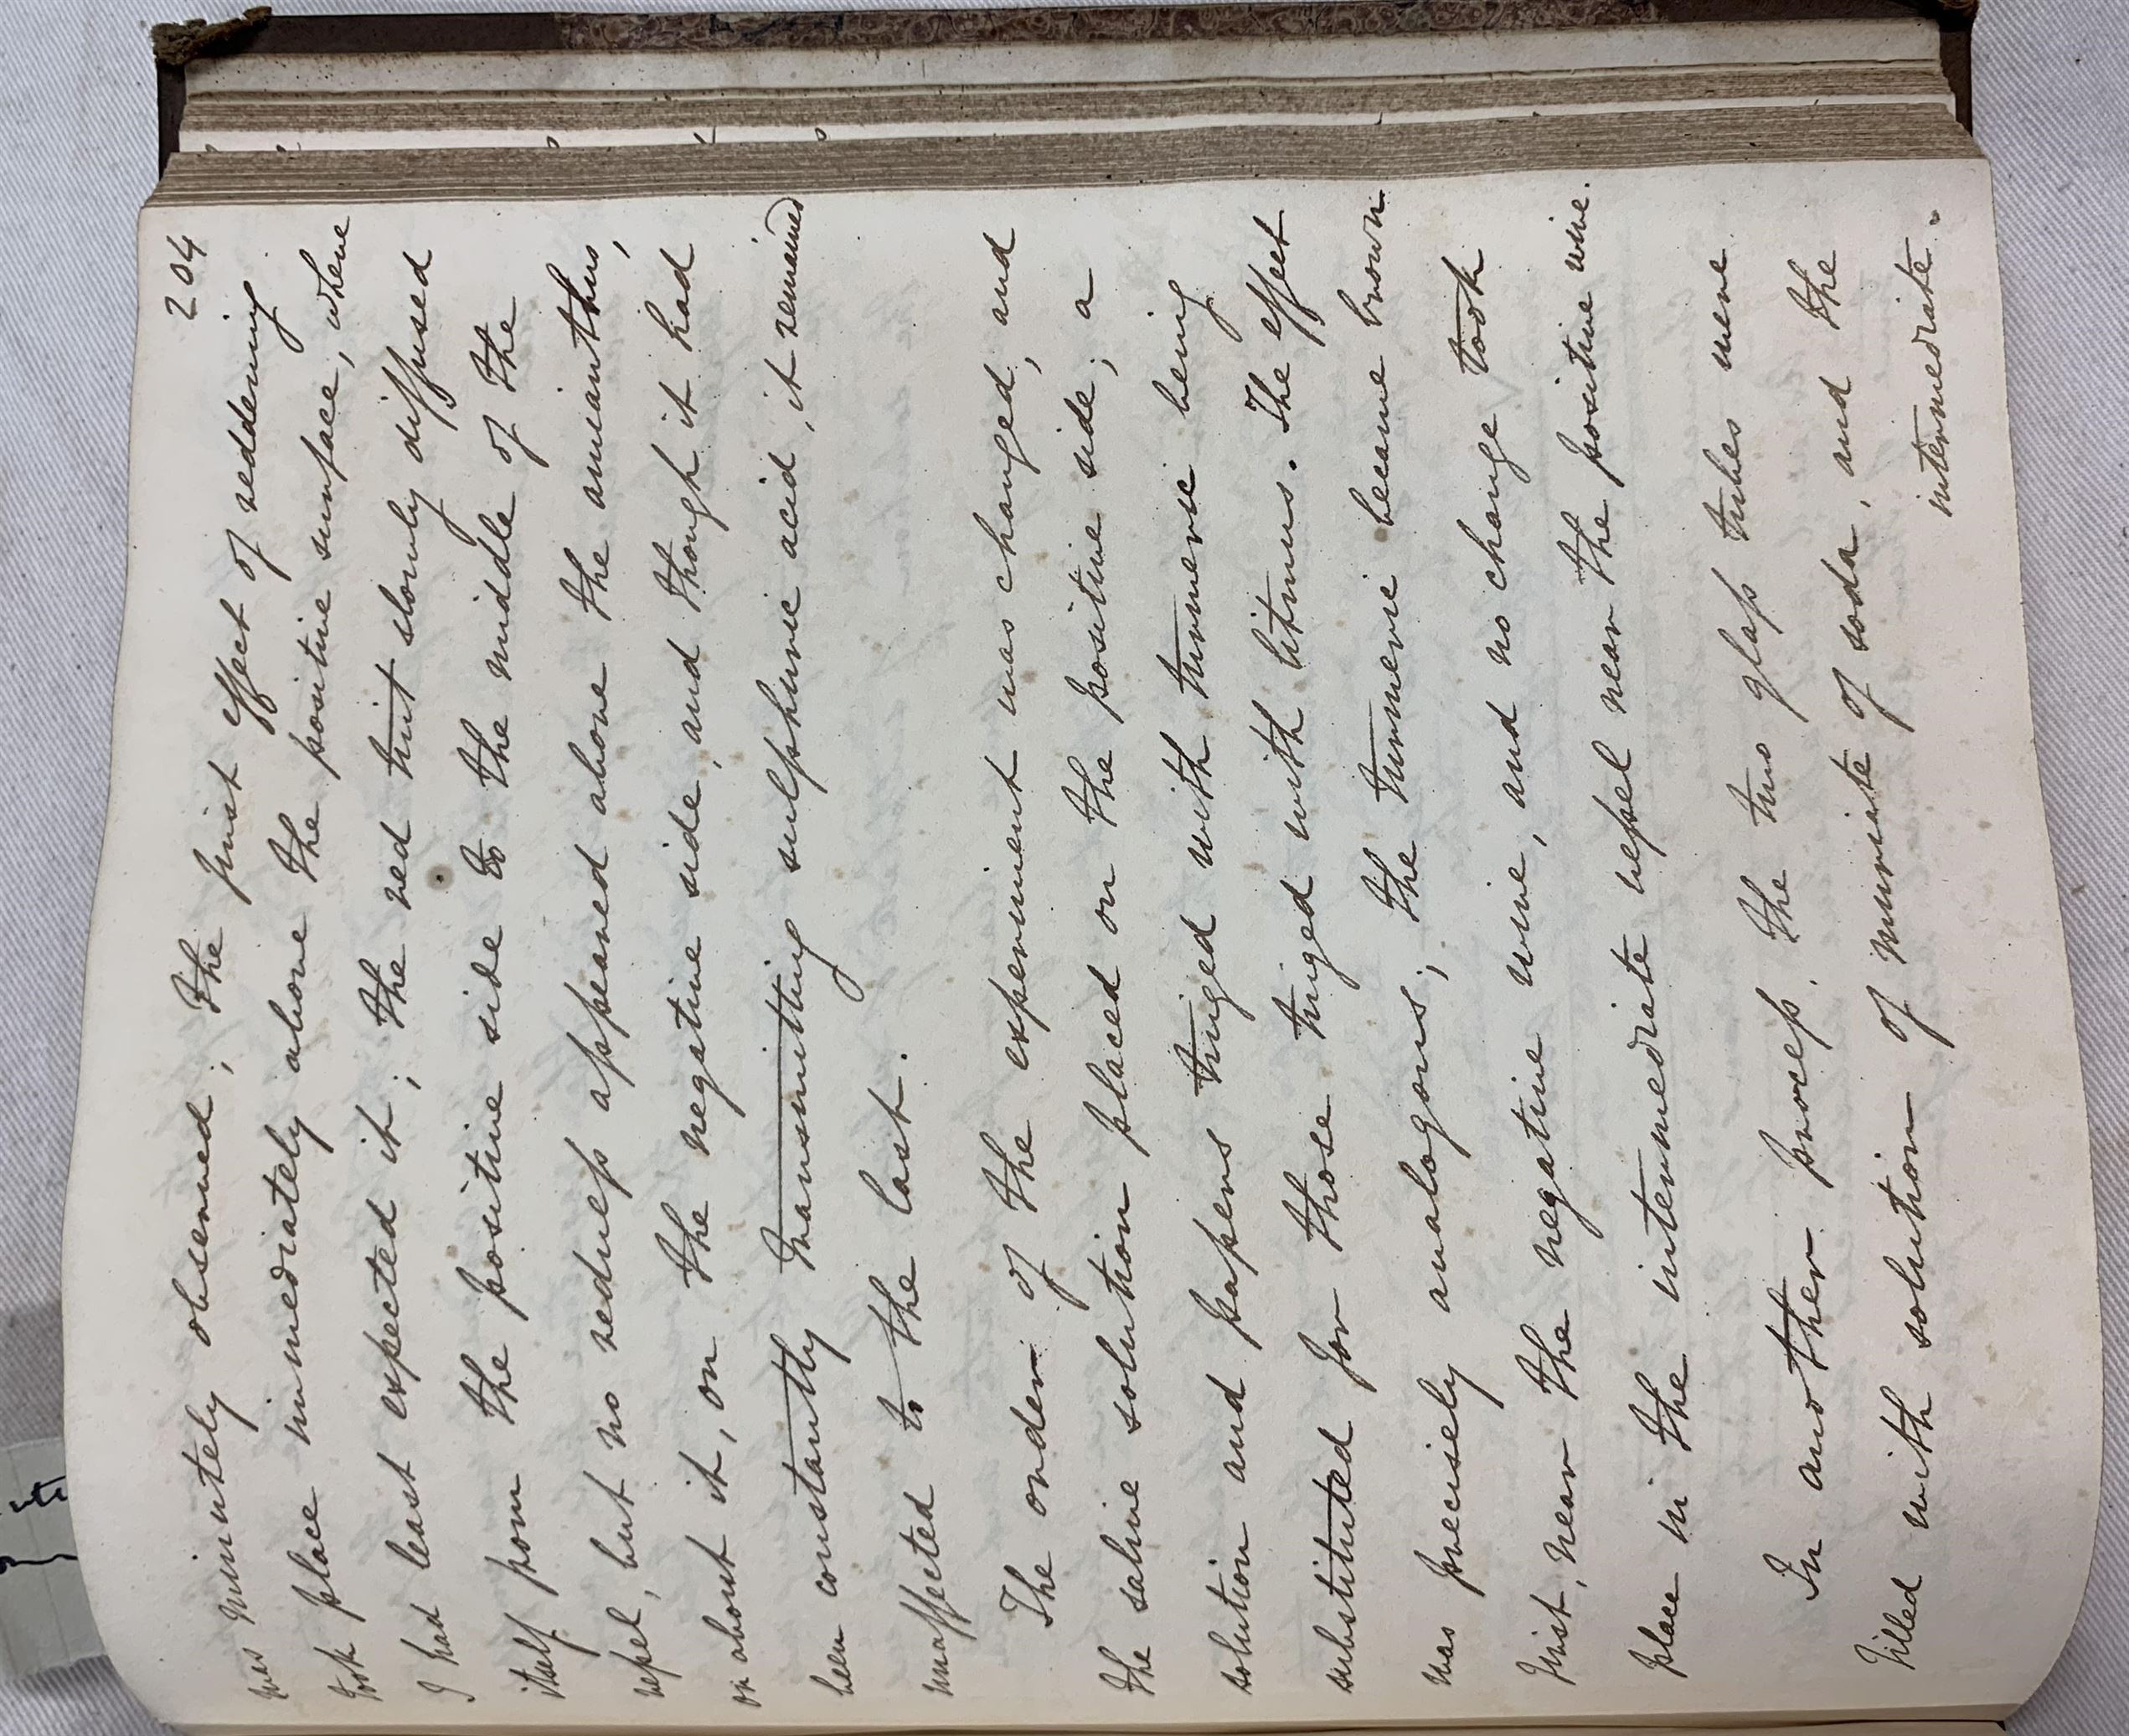 204
was minutely observed; the first effect of reddening
took place immediately above the positive surface, where
I had least expected it; the red tint slowly diffused
itself from the positive side to the middle of the
vessel, but no redness appeared above the amianthus,
or about it, on the negative side, and though it had
been constantly transmitting sulphuric acid, it remained
unaffected to the last.
The order of the experiment was changed, and
the saline solution placed on the positive side; a
solution and papers tinged with turmeric being
substituted for those tinged with litmus. The effect
was precisely analogous; the turmeric became brown
first, near the negative wire, and no change took
place in the intermediate vessel near the positive wire.
In another process, the two glass tubes were
filled with solution of muriate of soda, and the
intermediate